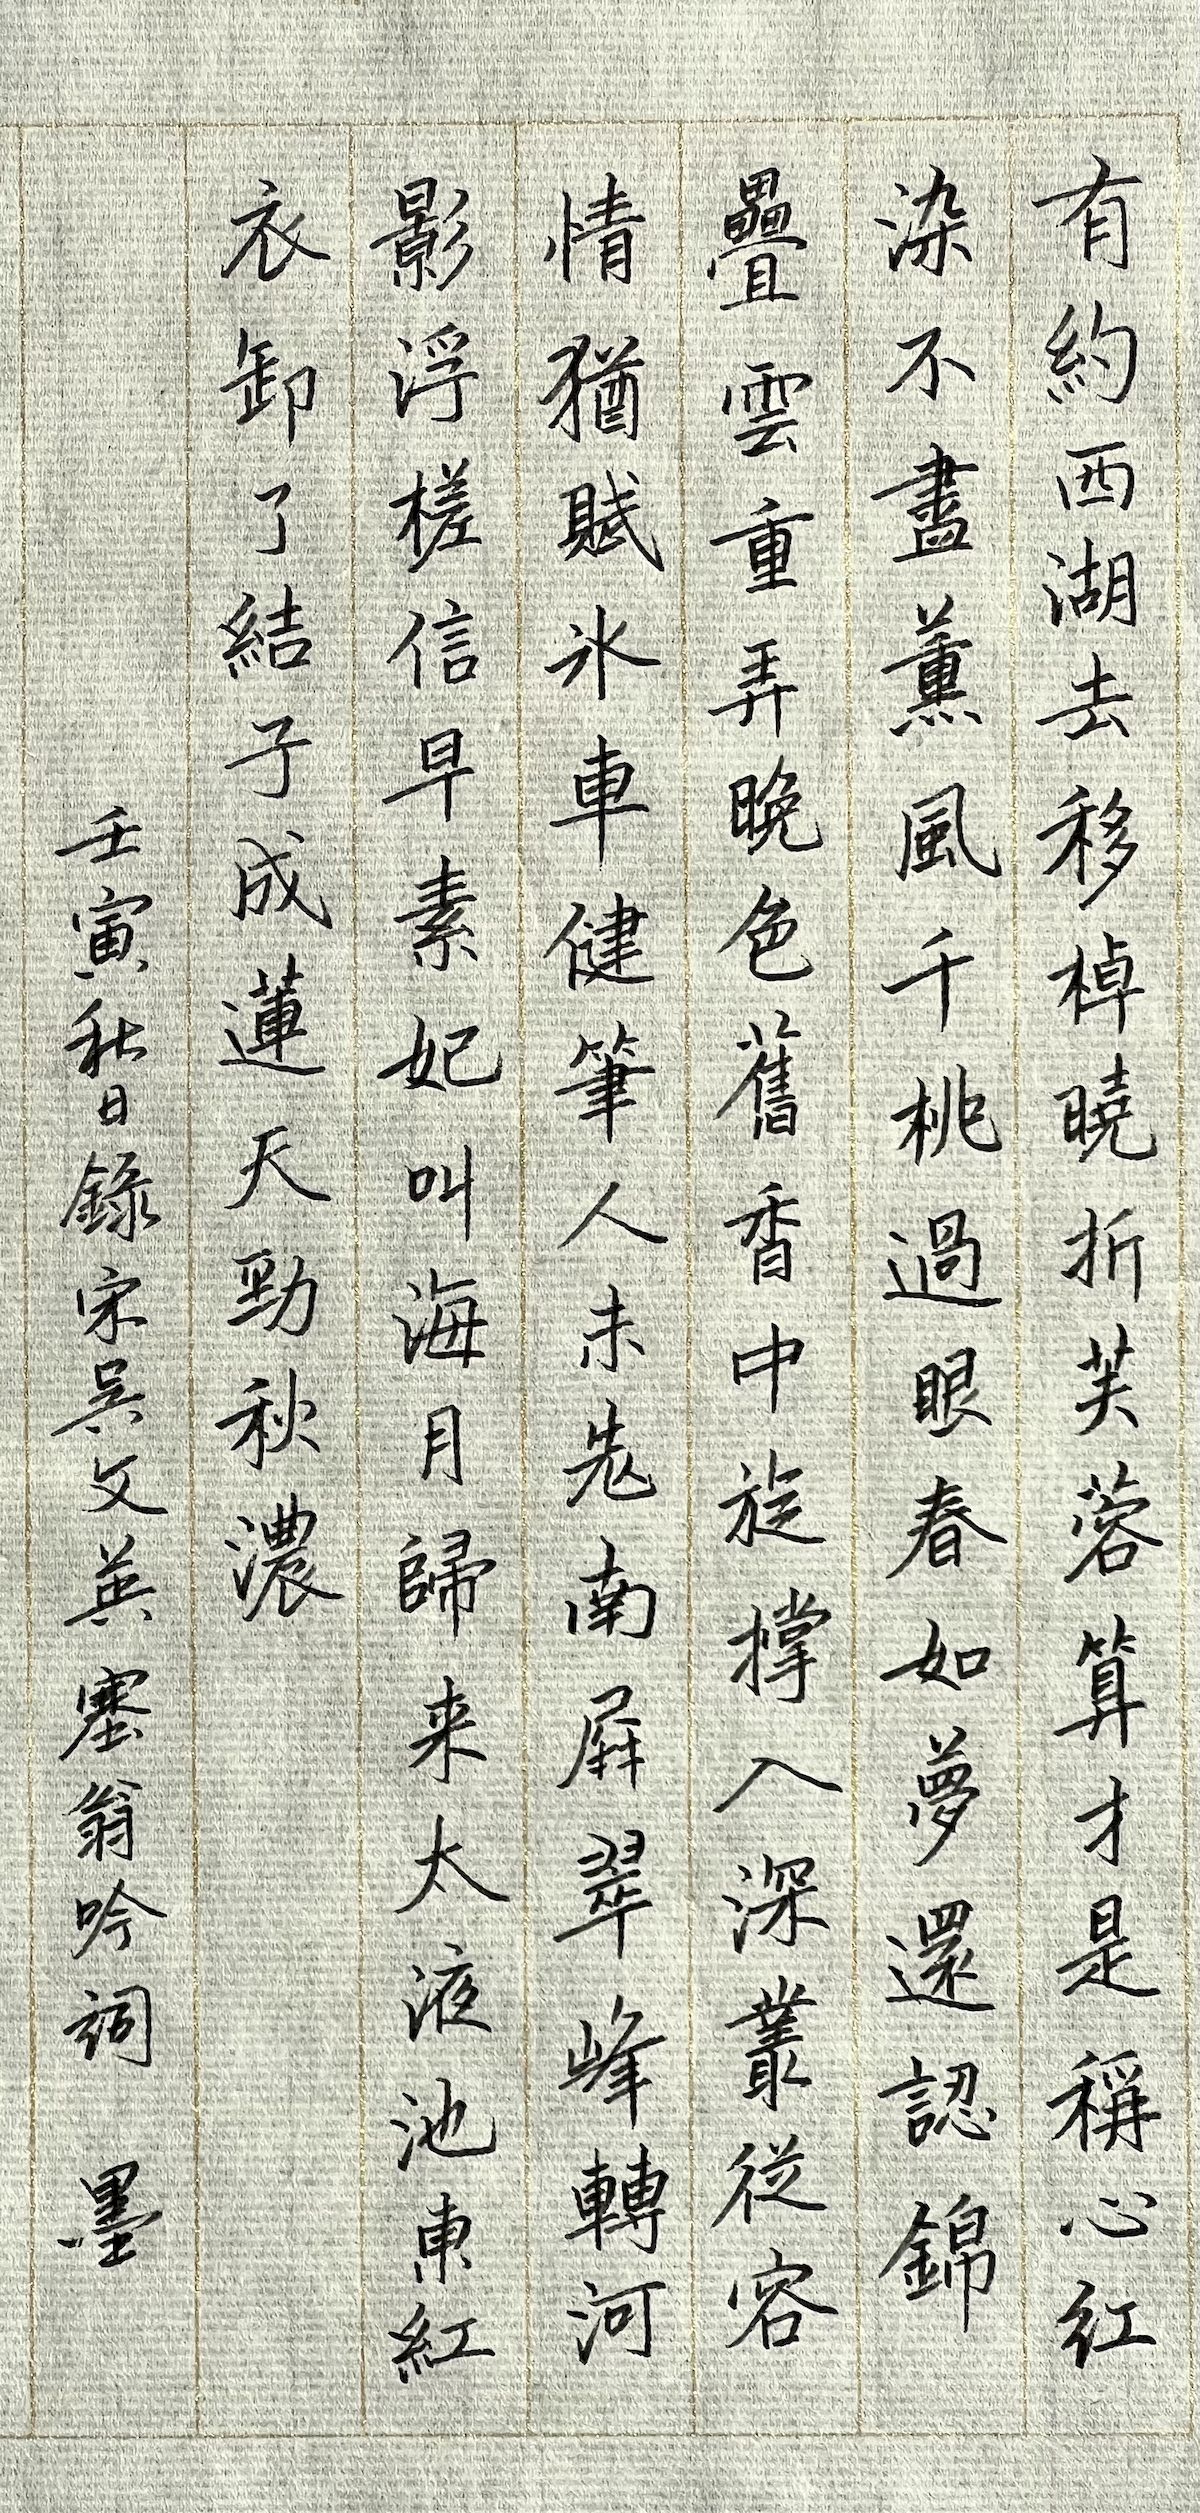 有約西湖去移棹曉折芙蓉算才是稱心紅
染不盡薰風千桃過眼春如夢還認錦
疊雲重弄晚色舊香中旋撑入深叢從容
情猶賦冰車健筆人未老南屏翠峰轉河
影浮槎信早素妃叫海月歸来太液池東紅
衣卸了結子成蓮天勁秋濃
壬寅秋日錄宋吴文英塞翁吟詞 墨